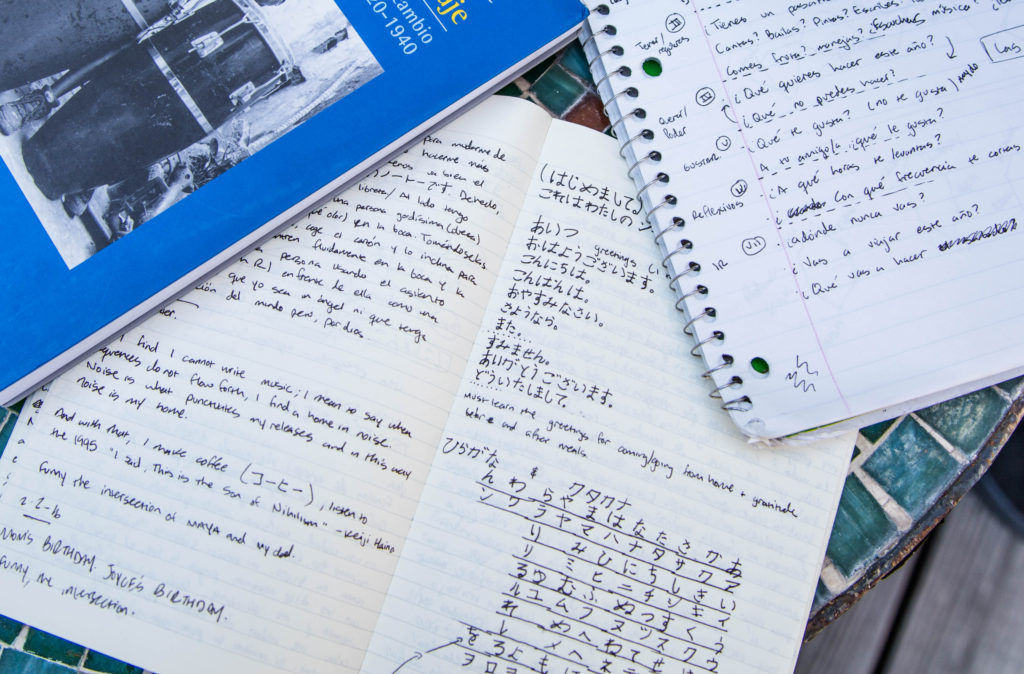 je
Cambio
20-1940
para moderarme de
hacerme más
bien el
ノートです
libreta / Al lado tengo
una persona
en la boca.
el cañón y lo inclina para
en la boca y la
persona usando el asiento
enfrente de ella como una
que yo sea un ángel ni que tenga
del mundo pero, por dios
I find I cannot write music; I mean to say when
sequences do not flow forth, I find a home in noise.
Noise is what punctuates my releases and in this way
noise is my home.
And with that, I make coffee (コーヒー), listen to
the 1995 "I said, This is the Son of Nihilism" - Keiji Haino
Funny the intersection of MAYA and my dad.
2-2-16
MOM'S BIRTHDAY. JOYCE'S BIRTHDAY.
Funny, the intersection.
(はじめまして。
これはわたしのノ
あいつ greetings
おはようございます。
こんにちは。
こんばんは。
おやすみなさい。
さようなら。
また。...
すみません。
ありがとうございます。
どういたしまして。
Must learn the greetings for coming/going from home + gratitude
before and after meals.
ひらがな & カタカナ
んわらやまはなたさかあ
ンワラヤマハナタサカア
り みひにちしきい
リ ミヒニチシキイ
るゆむふぬつすくう
ルユムフヌツスクウ
れ めへねてせ
レ メヘネ
をろよも
ヲロヨ
¿Tienes un
Tener/
III
Cantas? Bailas? Pintas? Escribes?
Comes fruta? manejas? ¿Escuchas música?
¿Qué quieres hacer este año?
Las
Querer/
Poder
IV
¿Qué no puedes hacer?
¿Qué te gusta? (no te gusta)
GUSTAR
V
A tu amigo/a ¿qué le gusta?
¿A qué horas te levantas?
Reflexivos
VI
Con qué frecuencia te
¿adónde nunca vas?
IR
VII
¿Vas a viajar este año?
¿Qué vas a hacer